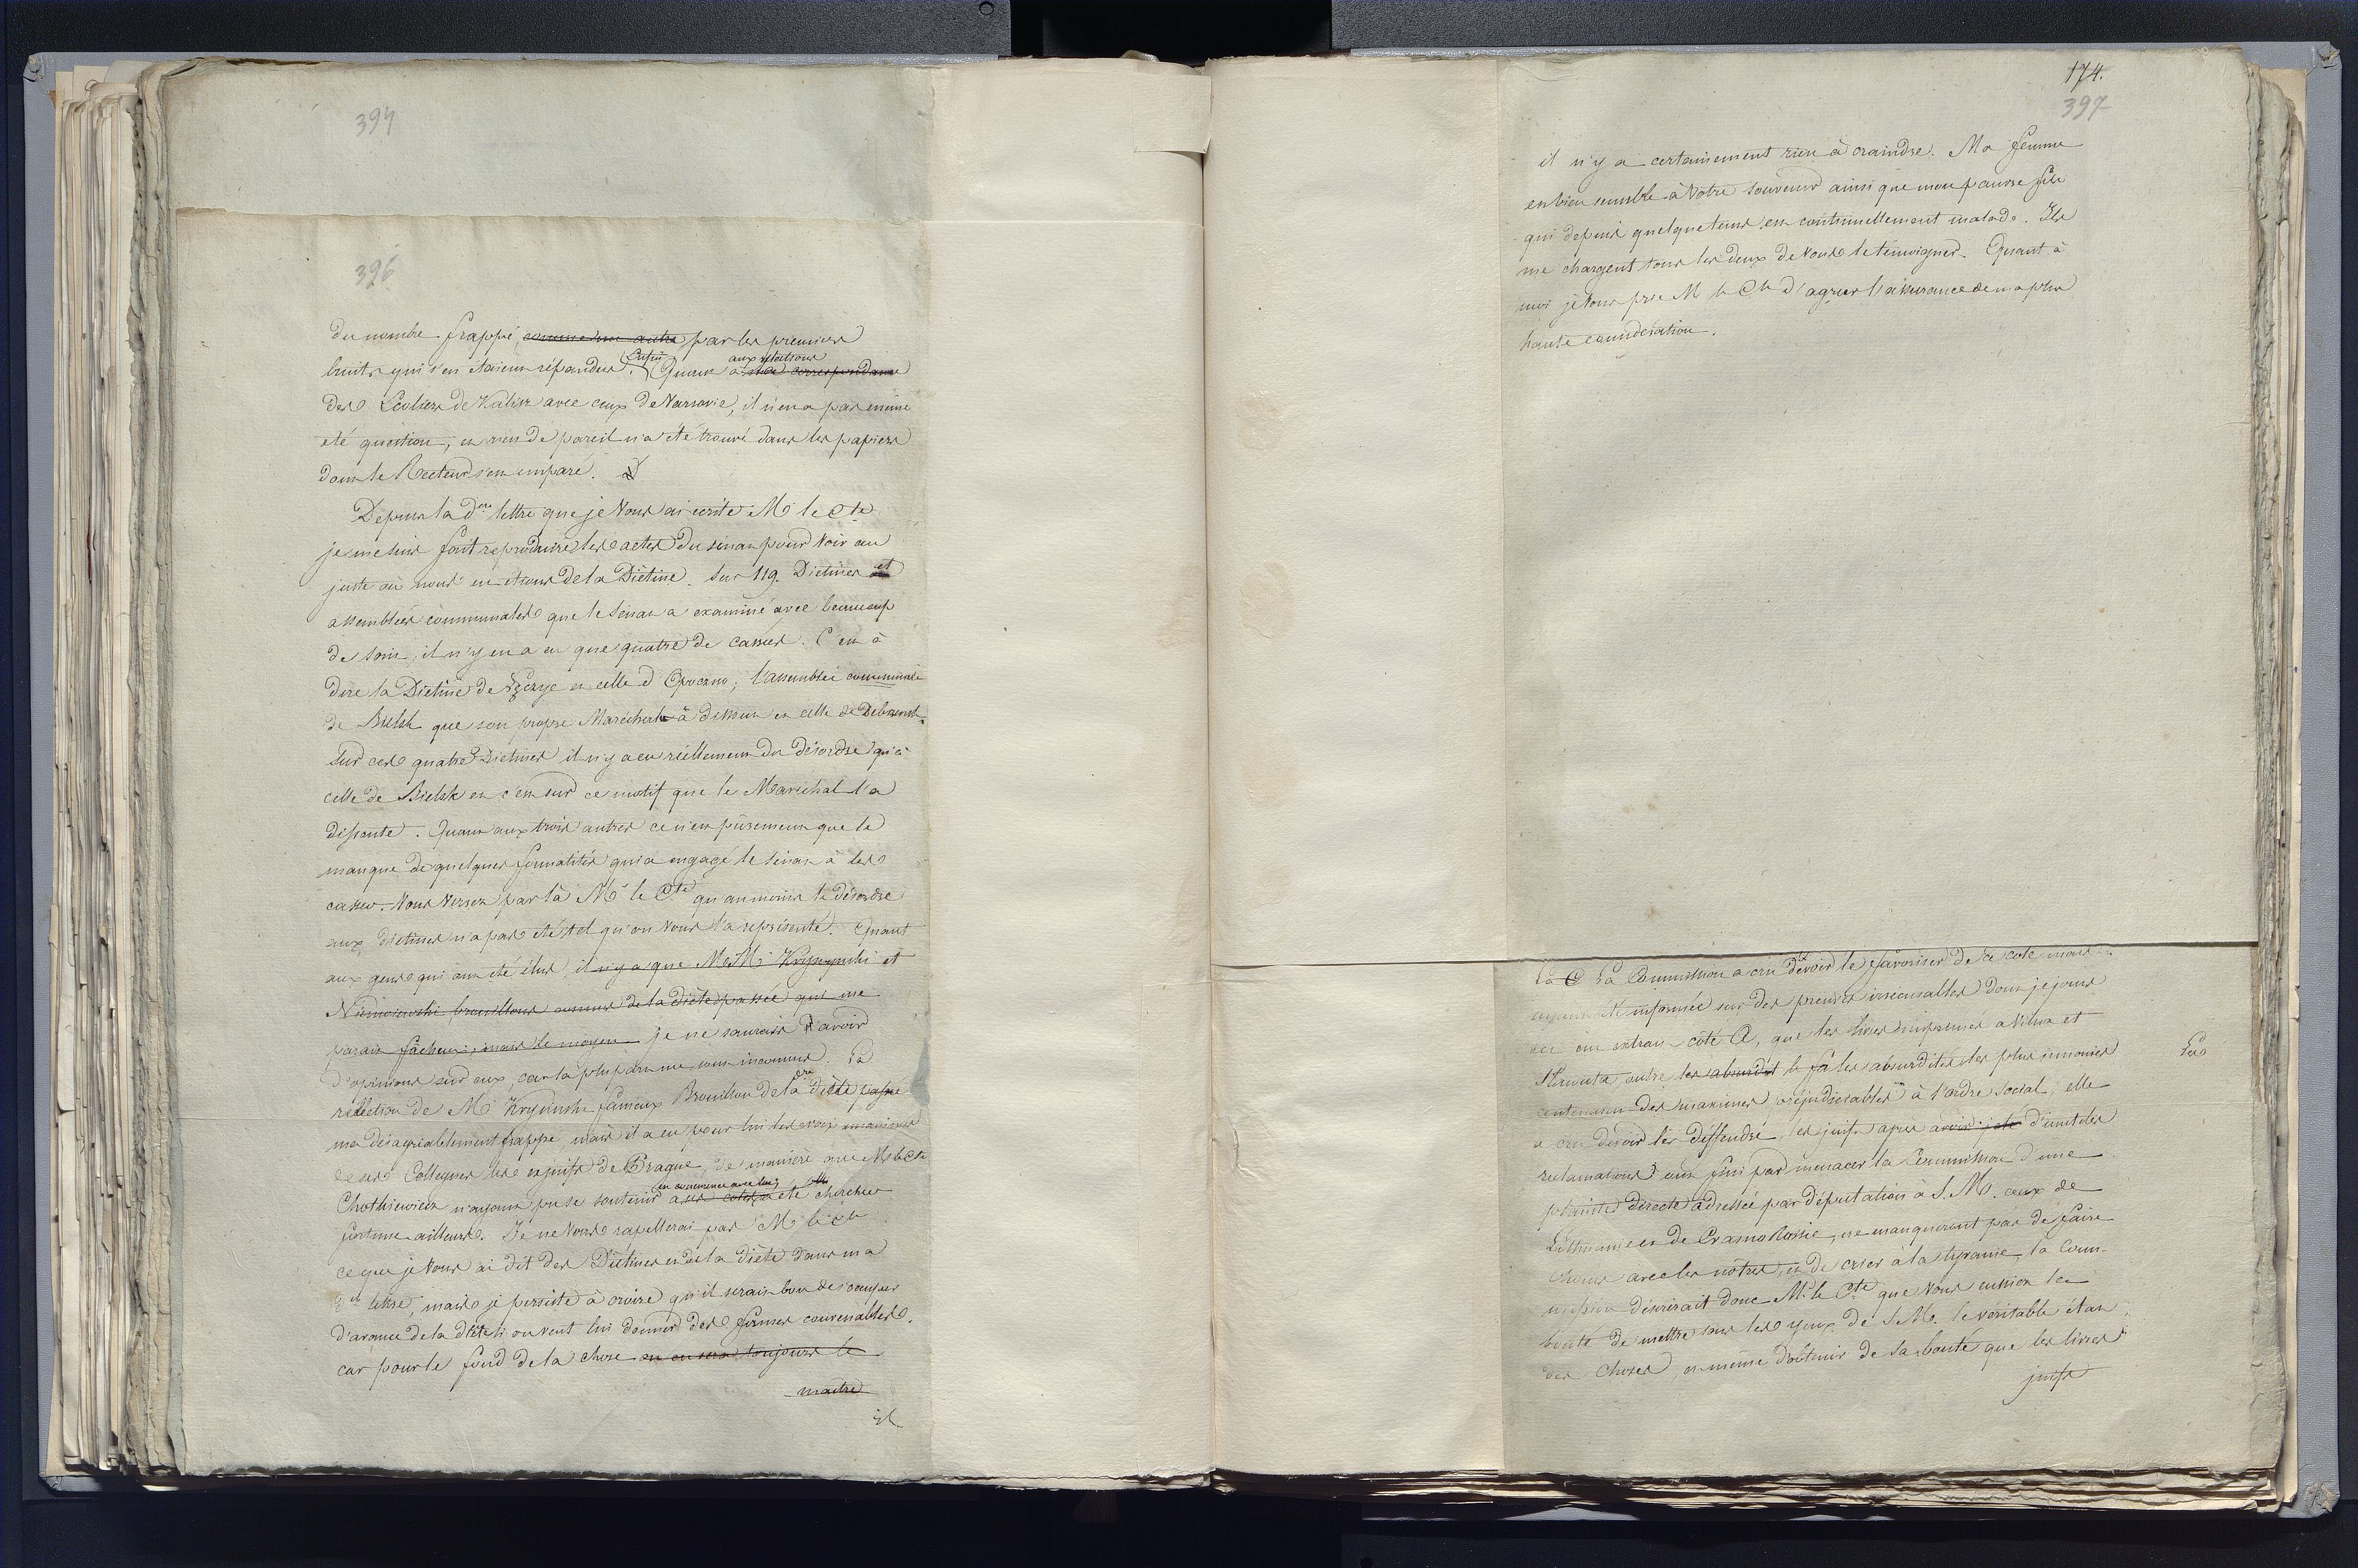 394
396
du nombre frappé comme un autre par les premiers
bruits qui s'en étaient répandus. Enfin Quant à aux relations correspondance
des Ecoliers de Kalisz avec ceux de Varsovie, il n'en a pas même
été question, et rien de pareil n'a été trouvé dans les papiers
dont le Recteur s'est emparé.
Depuis la dre lettre que je Vous ai écrite Mr le Cte
je me suis fait reproduire les actes du sénat pour voir au
juste où nous en étions de la Diétine. Sur 119. Diétines et
assemblées communales que le Sénat a examiné avec beaucoup
de soin, il n'y en a eu que quatre de cassées. C'est à
dire la Diétine de Łęczyc et celle d'Opoczno; l'assemblée communale
de Bielsk que son propre Maréchal a dissout et celle de
Sur ces quatre Diétines il n'y a eu réellement du désordre qu'à
celle de Bielsk et c'est sur ce motif que le Maréchal l'a
dissoute. Quant aux trois autres ce n'est purement que le
manque de quelques formalités qui a engagé le sénat à les
casser. Vous verrez par là Mr le Cte qu'au moins le désordre
aux diétines n'a pas été tel qu'on Vous l'a représenté. Quant
aux gens qui ont été élus, il n'y a que MM. Krysinski et
Niemoiewski, brouillons connus de la diète passée qui me
parait fâcheux, mais le moyen je ne saurais avoir
d'opinions sur eux, car la plupart me sont inconnus. La
réélection de Mr Krysinski fameux Brouillon de la dre diète passée
m'a désagréablement frappé mais il a eu pour lui les voix
de ses Collegues les esprits de Prague, de manière que Mr le Cte
Chothiewicz n'ayant pu se soutenir en concurrence avec lui, a été chercher
fortune ailleurs. Je ne Vous rapellerai pas Mr le Cte
ce que je Vous ai dit des Diétines et de la diète dans ma
dre lettre, mais je persiste à croire qu'il serait bon de s'occuper
d'avance de la diète si on veut lui donner des formes convenables.
car pour le fond de la chose on en sera toujours le
maitre
il
174.
397
il n'y a certainement rien à craindre. Ma femme
est bien sensible à Votre souvenir ainsi que mon pauvre fils
qui depuis quelque tems est continuellement malade. Ils
me chargent tous les deux de Vous le témoigner. Quant à
moi je Vous prie M le Cte d'agréer l'assurance de ma plus
haute considération.
La Commission a cru devoir le favoriser de ce coté mais
ayant été informée sur des preuves irrécusables dont je joins
ici un extrait côté A, que les livres imprimés a Vilna et
outre les absurdit le fa les absurdités les plus
contenaient des maximes préjudiciables à l'ordre social, elle
a cru devoir les déffendre, les juifs après avoir jeté d'inutiles
reclamations ont fini par menacer la Commission d'une
plainte directe adressée par députation à S. M. ceux de
Lithuanie et de Crasno Rossie, ne manqueront pas de faire
chorus avec les nôtres, et de crier à la tyrannie, la Com-
mission désirerait donc Mr le Cte que Vous eussiez la
bonté de mettre sous les yeux de S. M. le véritable état
des choses, et même d'obtenir de sa bonté que les livres
juifs